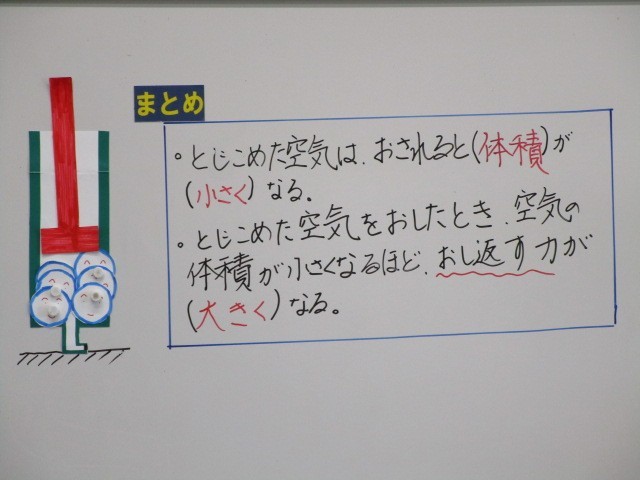 まとめ
。とじこめた空気は、おされると(体積)が
(小さく)なる。
。とじこめた空気をおしたとき、空気の
体積が小さくなるほど、おし返す力が
(大きく)なる。